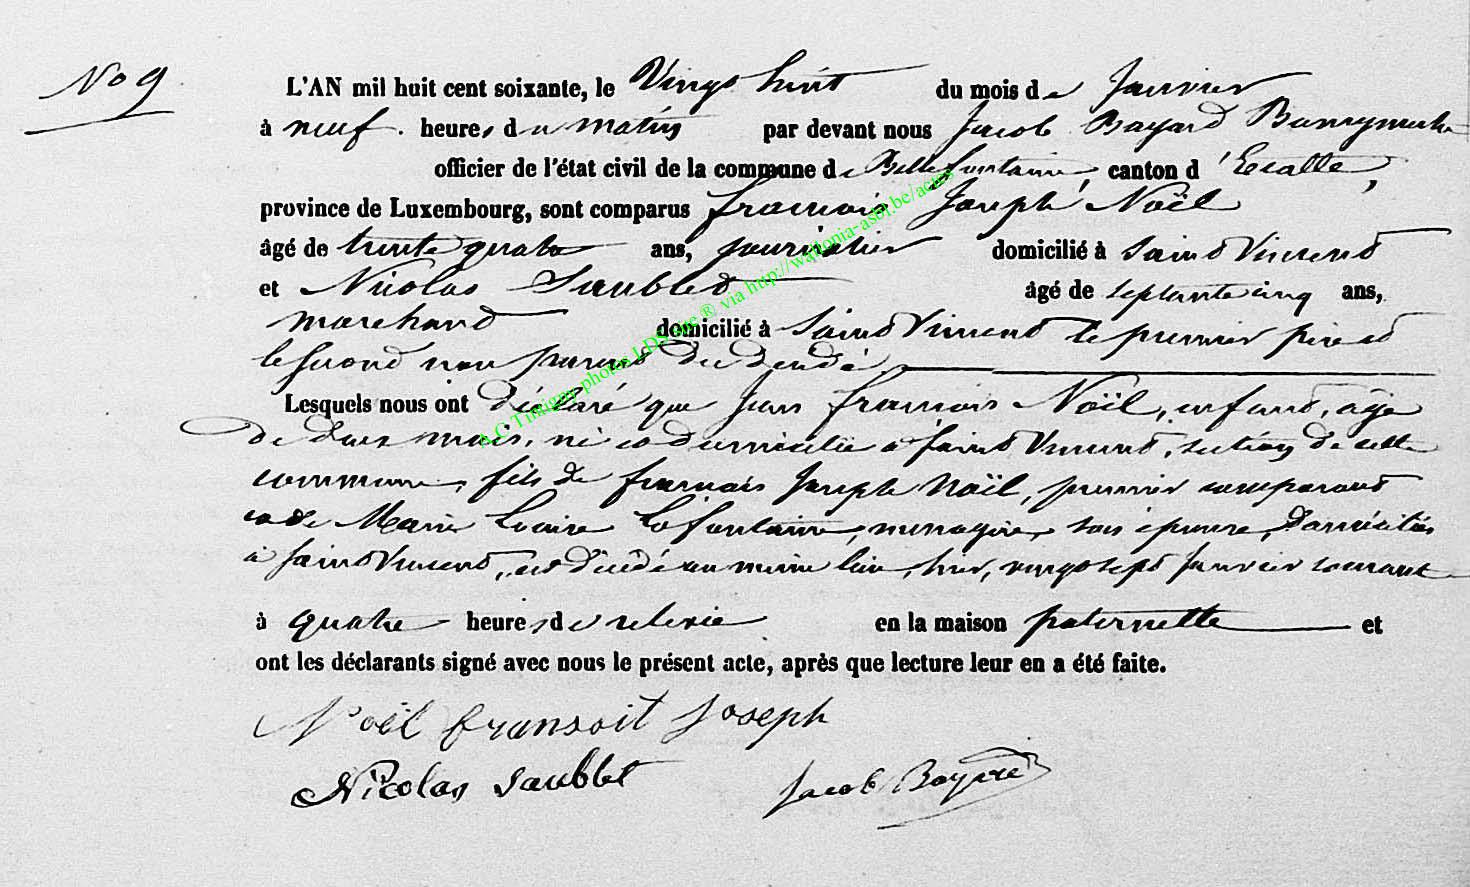 No 9
L'AN mil huit cent soixante, le Vingt huit du mois de Janvier
à neuf heures du matin par devant nous Jacob Bayard Bourgmestre
officier de l'état civil de la commune de Bellefontaine, canton d'Etalle,
province de Luxembourg, sont comparus francois Joseph Noël
âgé de trente quatre ans, journalier domicilié à Saint Vincent
et Nicolas Saublet âgé de septante cinq ans,
marchand domicilié à Saint Vincent le premier père et
le second non parent du décédé
Lesquels nous ont déclaré que Jean francois Noël, enfant, âgé
de deux mois, né et domicilié à Saint Vincent, section de cette
commune, fils de francois Joseph Noël, premier comparant
et de Marie Lafontaine, menagère, son épouse, domiciliés
à Saint Vincent, est décédé au même lieu, hier, vingt sept Janvier courant
à quatre heures de relevée en la maison paternelle et
ont les déclarants signé avec nous le présent acte, après que lecture leur en a été faite.
Noël fransoit Joseph
Nicolas Saublet Jacob Bayard
A.C Tintigny photos LDS Sue ® via http://wallonia-asbl.be/actes